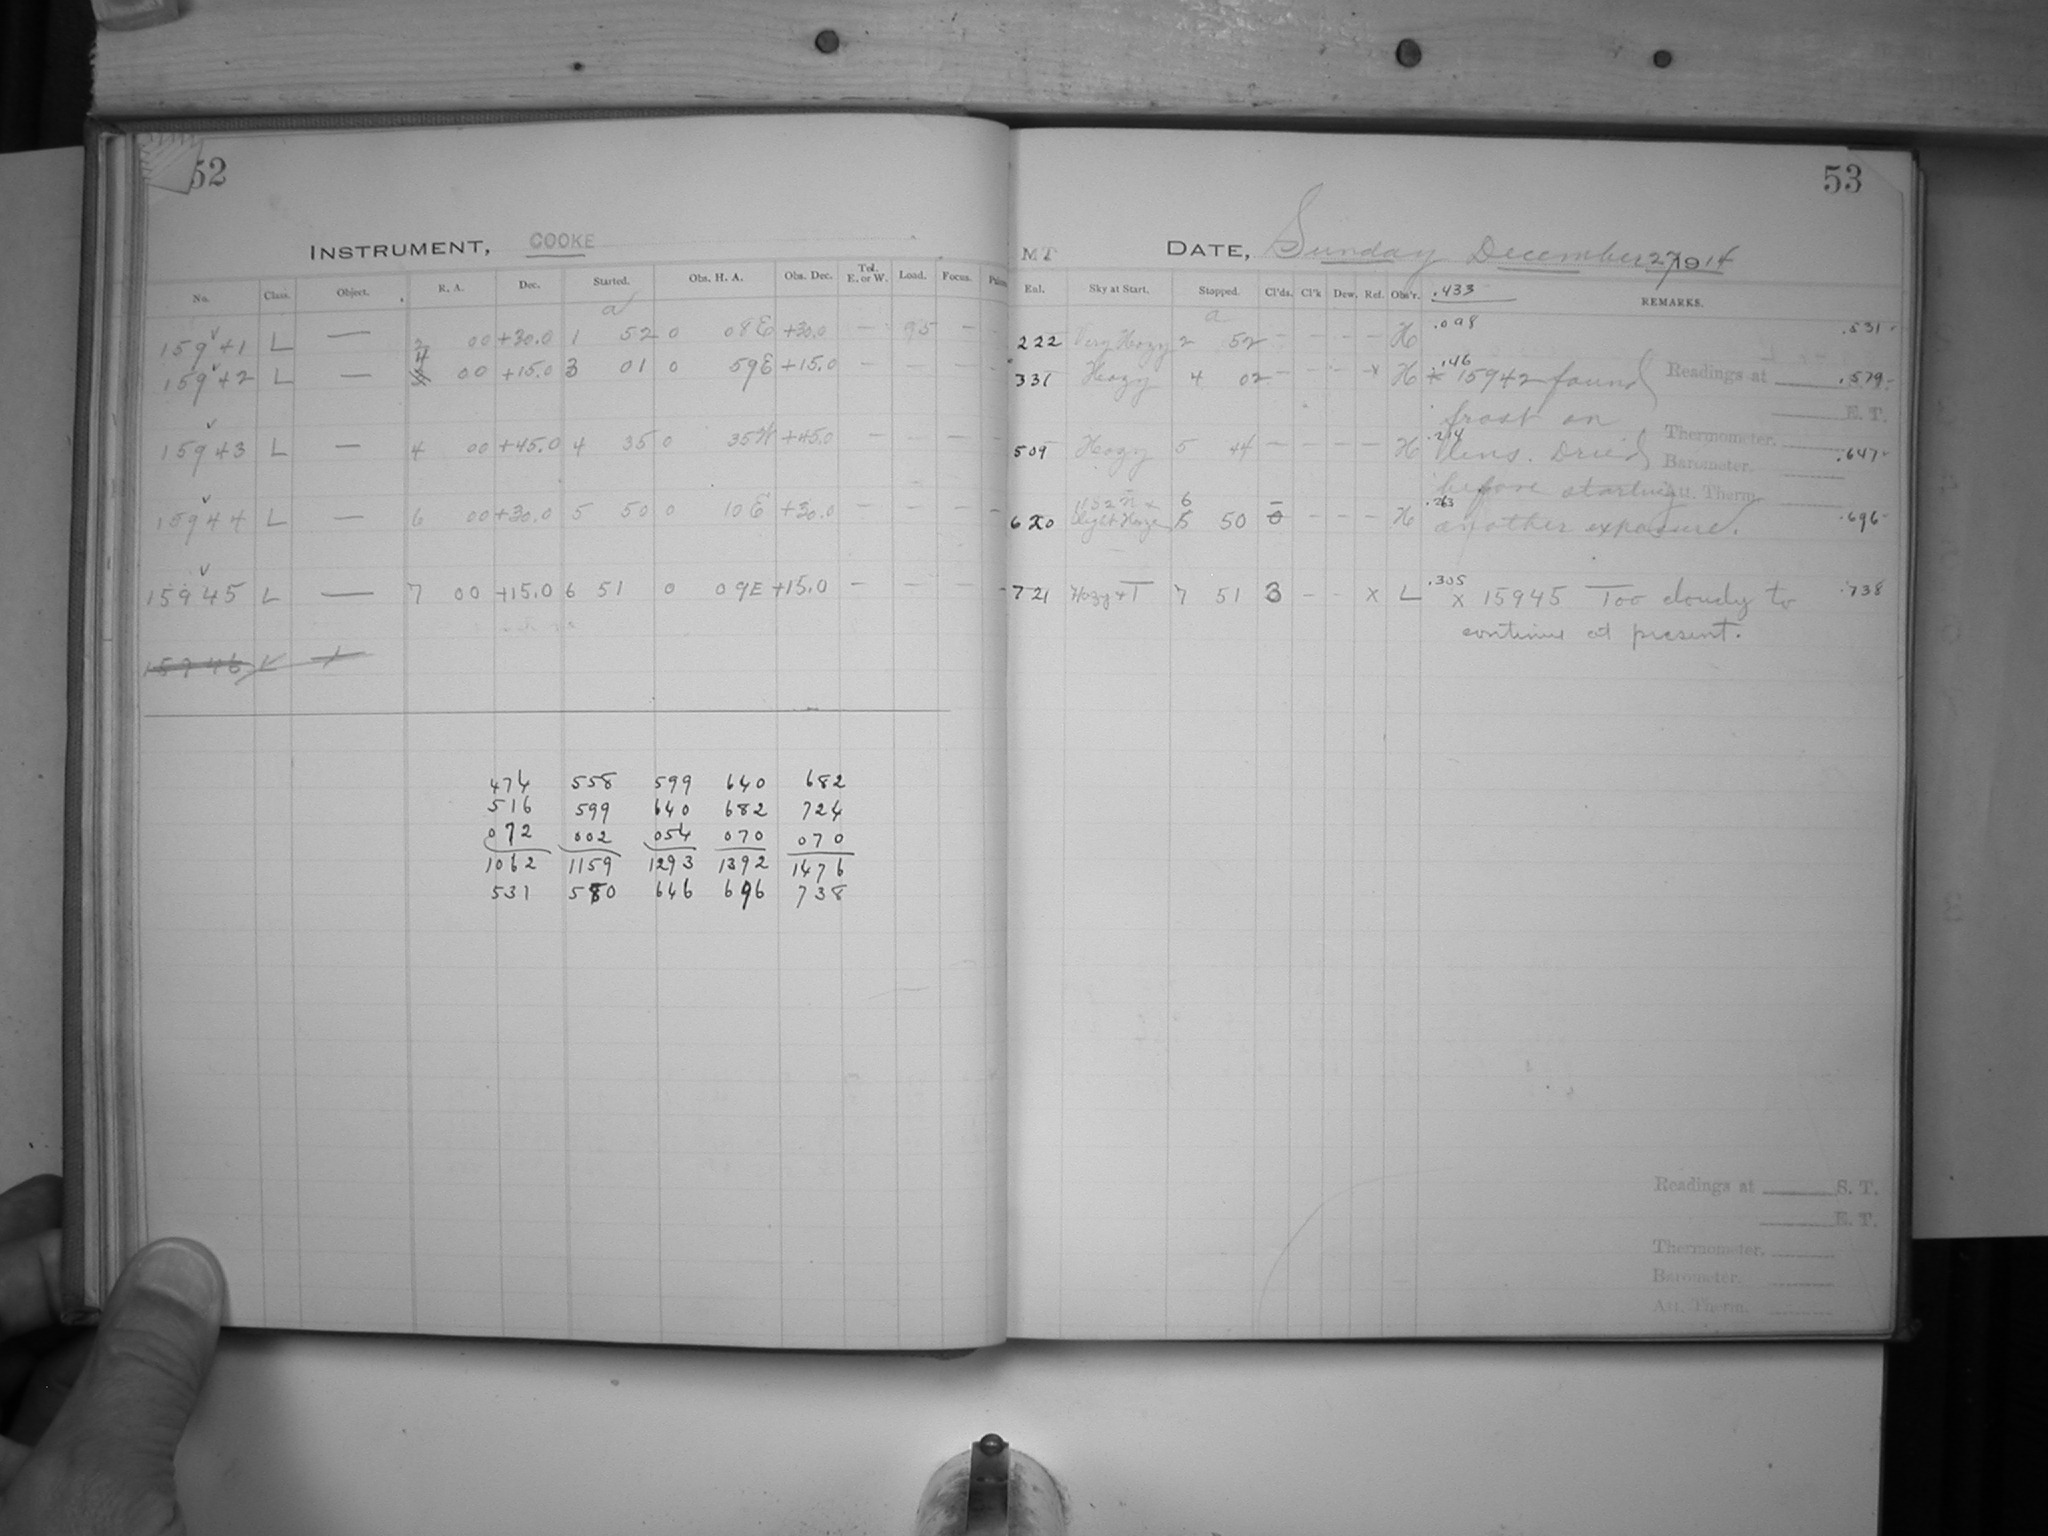 52
INSTRUMENT, COOKE
No. Class. Object. R. A. Dec. Started. Obs. H. A. Obs. Dec. Tel. E. or W. Load. Focus.
a
15941 L — 2 00 +30.0 1 52 0 08E +30.0 — 95 —
15942 L — 4 00 +15.0 3 01 0 59E +15.0 —
15943 L — 4 00 +45.0 4 35 0 35W +45.0 — — —
15944 L — 6 00 +30.0 5 50 0 10E +30.0 — — —
15945 L — 7 00 +15.0 6 51 0 09E +15.0 — — —
15946 L —
474 558 599 640 682
516 599 640 682 724
072 002 054 070 070
1062 1159 1293 1392 1476
531 580 646 696 738
53
MT DATE, Sunday December 27 1914
Enl. Sky at Start. Stopped. Cl'ds. Cl'k Dew. Ref. Obs'r. .433 REMARKS.
a
222 Very Hazy 2 52 — — — — H .098 .531
331 Hazy 4 02 — — — x H .146 x 15942 found Readings at .579
frost on E. T.
509 Hazy 5 44 — — — — H .214 lens. Dried Thermometer. .647
Barometer.
before starting Att. Therm.
620 Slight Haze 6 50 0 — — — H .263 another exposure. .696
721 Hazy + T 7 51 3 — — x L .305 x 15945 Too cloudy to .738
continue at present.
Readings at S. T.
E. T.
Thermometer.
Barometer.
Att. Therm.